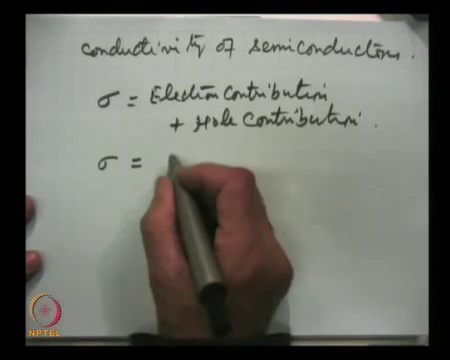 conductivity of semiconductors.
σ = Electron contribution
+ Hole contribution.
σ =
NPTEL